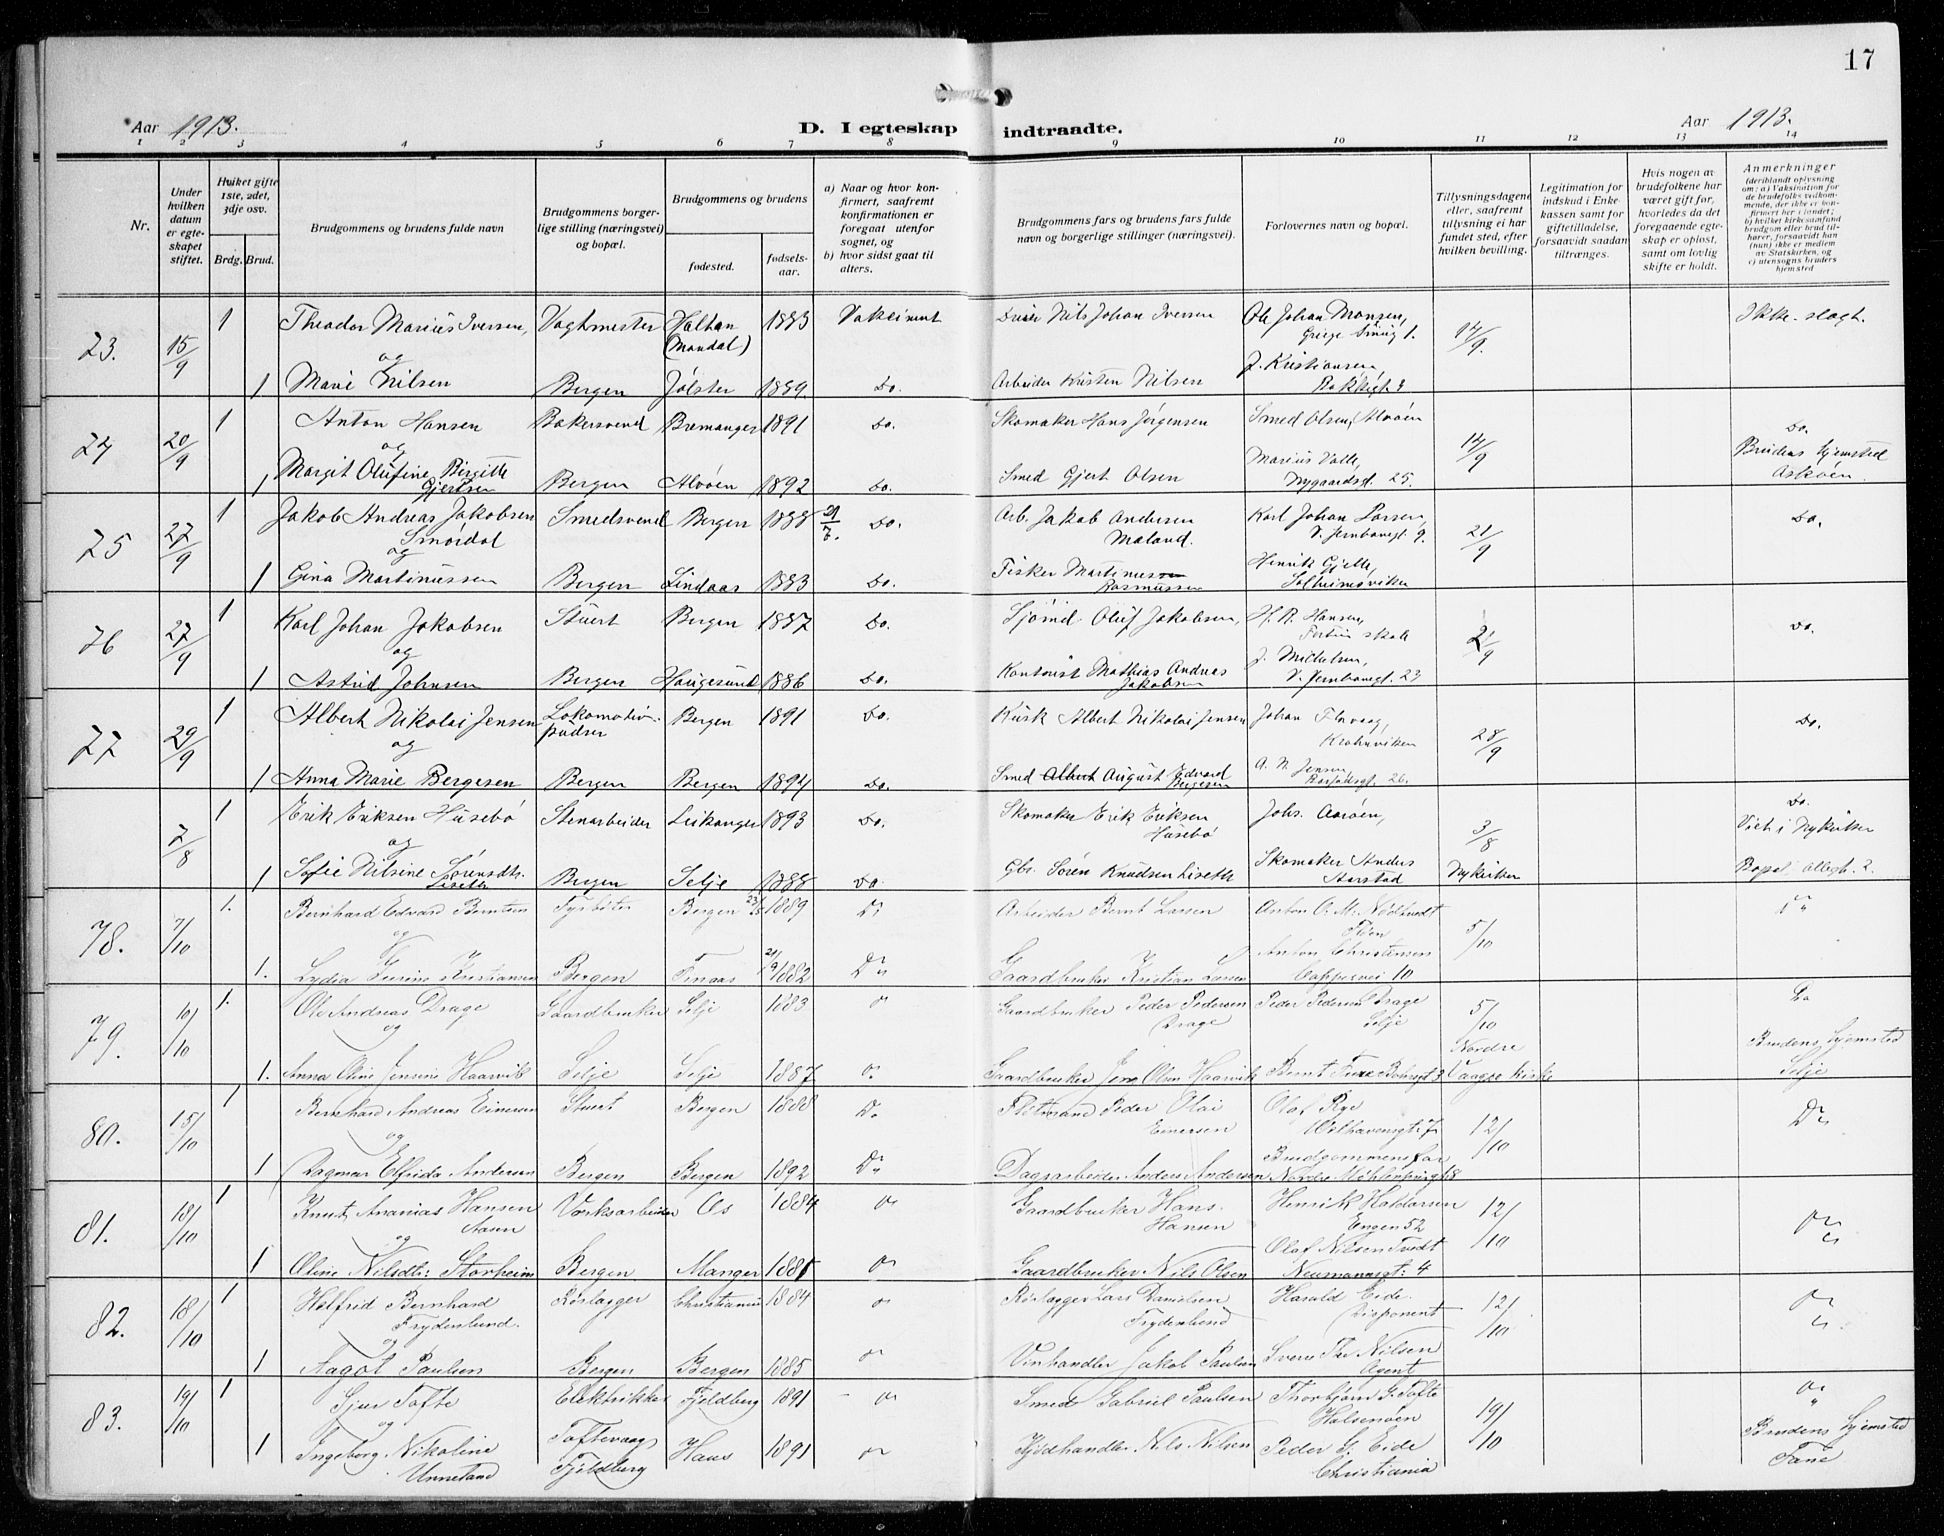 17
Aar 1913.
D. I egteskap indtraadte.
Aar 1913.
1 2 3 4 5 6 7 8 9 10 11 12 13 14
Nr.
Under hvilken datum er egteskapet stiftet.
Hvilket gifte 1ste, 2det, 3dje osv.
Brdg. Brud.
Brudgommens og brudens fulde navn
Brudgommens borgerlige stilling (næringsvei) og bopæl.
Brudgommens og brudens
fødested.
fødselsaar.
a) Naar og hvor konfirmert, saafremt konfirmationen er foregaat utenfor sognet, og
b) hvor sidst gaat til alters.
Brudgommens fars og brudens fars fulde navn og borgerlige stillinger (næringsvei).
Forlovernes navn og bopæl.
Tillysningsdagene eller, saafremt tillysning ei har fundet sted, efter hvilken bevilling.
Legitimation for indskud i Enkekassen samt for giftetilladelse, forsaavidt saadan tiltrænges.
Hvis nogen av brudefolkene har været gift før, hvorledes da det foregaaende egteskap er opløst, samt om lovlig skifte er holdt.
Anmerkninger
(deriblandt oplysning om: a) Vaksination for de brudefolks vedkommende, der ikke er konfirmert her i landet; b) hvilket kirkesamfund brudgom eller brud tilhører, forsaavidt han (hun) ikke er medlem av Statskirken, og c) utensogns bruders hjemsted
73. 15/9 1 Theodor Marius Iversen, Vagtmester Haltan (Mandal) 1883 Vakcinert Nils Johan Iversen Ole Johan Monsen, 14/9. Ikke slægt.
og J. Kristiansen,
1 Marie Nilsen Bergen Jølster 1889. Do. Arbeider Kristen Nilsen
74 20/9 1 Anton Hansen Bakersvend Bremanger 1891 Do. Skomaker Hans Jørgensen Smed Olsen, Alvøen 14/9 Do.
og Marius Valle, Brudens hjemsted
1 Margit Olufine Birgitte Gjertsen Bergen Alvøen 1892 Do. Smed Gjert Olsen Nygaardsgt. 25. Askøen.
75 27/9 1 Jakob Andreas Jakobsen Smørdal Smedsvend Bergen 1888 21/7. Do. Arb. Jakob Andersen Maland. Karl Johan Larsen, V. Jernbanegt. 9. 21/9 Do.
og Henrik Gjelle,
1 Gina Martinussen Bergen Lindaas 1883 Do. Fisker Martinus Rasmussen Solheimsviken
76 27/9 1 Karl Johan Jakobsen Stuert Bergen 1887 Do. Sjømd Oluf Jakobsen, H. R. Hansen, 21/9 Do.
og J. Michelsen,
1 Astrid Johnsen Bergen Haugesund 1886 Do. Kontorist Mathias Andreas Jakobsen V. Jernbanegt. 23
77 29/9 1 Albert Nikolai Jensen Lokomotivpudser Bergen 1891 Do. Kusk Albert Nikolai Jensen Johan Florvaag, 28/9 Do.
og A. N. Jensen,
1 Anna Marie Bergesen Bergen Bergen 1894 Do. Smed Albert August Edvard Bergesen
7/8 1 Erik Eriksen Husebø Stenarbeider Leikanger 1893 Do. Skomaker Erik Eriksen Husebø Johs. Aarøen, 3/8 Do.
og Viet i Nykirken
1 Sofie Nilsine Sørensdtr. Liseth Bergen Selje 1888 Do. Gbr. Søren Knudsen Liseth Skomaker Anders Aarstad Nykirken Bopæl: Allegt. 2.
78. 7/10 1. Bernhard Edvard Berntsen Fyrbøter Bergen 1889 Do Arbeider Bernt Larsen Anton A. M. Nødtvedt 5/10
og Anton Christensen
1. Lydia Kristiansen Bergen Finaas 21/9 1882 Do Gaardbruker Kristian Larsen 10
79. 10/10 1. Ole Andreas Drage Gaardbruker Selje 1883 Do Gaardbruker Peder Pedersen Drage Peder Pedersen Drage Selje 5/10 Do
og Nordre Brudens hjemsted
1. Anna Oline Jensine Haarvik Selje Selje 1887 Do Gaardbruker Jens Olsen Haarvik Bernt Vaagsø kirke Selje
80. 15/10 1 Bernhard Andreas Einersen Stuert Bergen 1888 Do Peder Olai Einersen Olaf Rye Welhavensgt: 7 12/10 Do
og Brudgommens far
1 Dagmar Elfrida Andersen Bergen Bergen 1892 Do Dagsarbeider Anders Andersen Nordre Möhlenprisgt 8
81. 18/10 1 Knut Ananias Hansen Aasen Værksarbeider Os 1884 Do Gaardbruker Hans Hansen Henrik Haldorsen Engen 52 12/10 Do
og Olaf Nilsen Tvedt
1 Oline Nilsdtr: Storheim Bergen Manger 1881 Do Gaardbruker Nils Olsen Neumannsgt: 4
82. 18/10 1 Halfrid Bernhard Frydenlund. Rørlægger Christiania 1884 Do Rørlægger Lars Danielsen Frydenlund Harald Eide Disponent 12/10 Do
og
1 Aagot Paulsen Bergen Bergen 1885 Do Vinhandler Jakob Paulsen Sverre Thr Nilsen Agent
83. 19/10 1 Sjur Tofte Elektriker Fjeldberg 1891 - Do Smed Gabriel Paulsen Thorbjørn G. Tofte Halsenøen 19/10 Do
og Toftevaag Brudens hjemsted
1 Ingeborg Nikoline Unneland Fjeldberg Haus 1891 Do Kjødhandler Nils Nilsen Peder G. Eide Christiania Fane